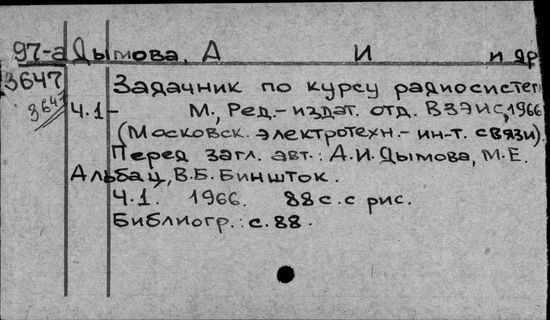 97-а Дымова, А И и др
3647
Задачник по курсу радиосистем
3647 Ч.1- М., Ред.-издат. отд. ВЗЭИС, 1966
(Московск. электротехн.- ин-т. связи).
Перед загл. авт.: А.И.Дымова, М.Е.
Альбац, В.Б. Биншток.
Ч.1. 1966. 88 с. с рис.
Библиогр.: с. 88.